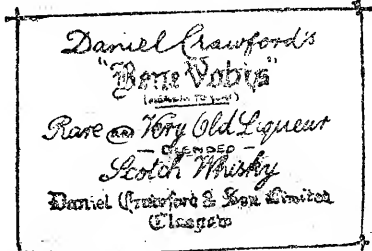 Daniel Crawford's
"Bene Vobis"
Rare and Very Old Liqueur
— BLENDED —
Scotch Whisky
Daniel Crawford & Son Limited
Glasgow